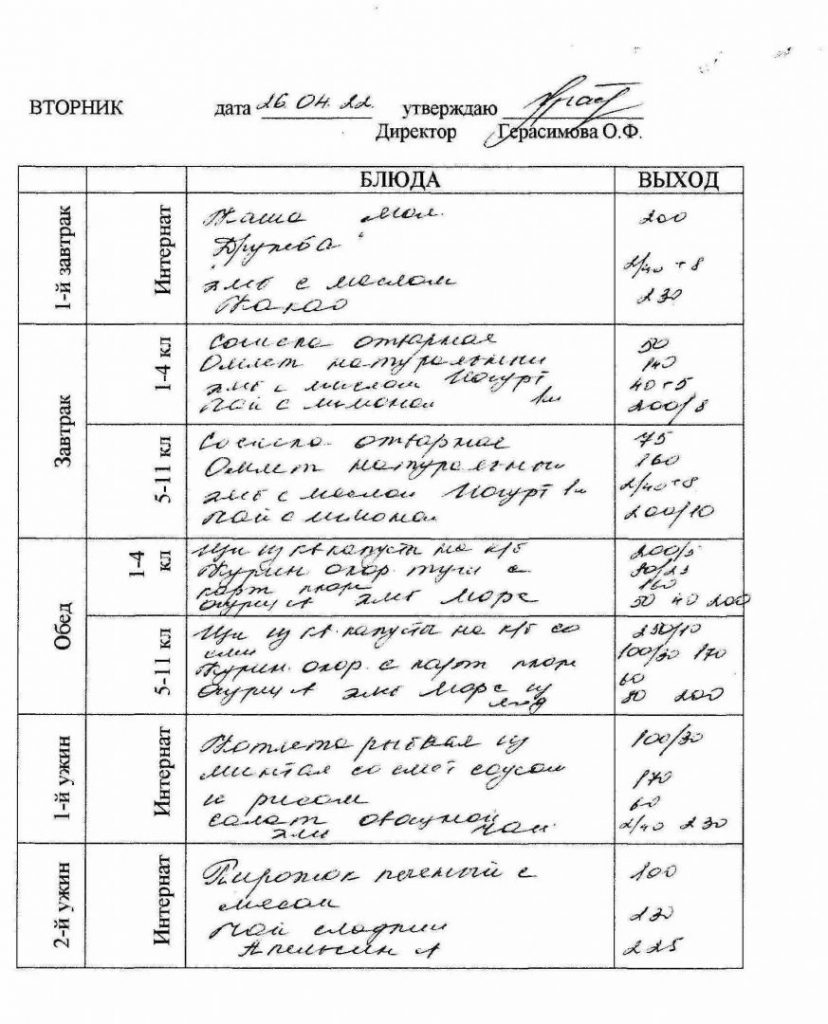 ВТОРНИК дата 26.04.22. утверждаю
Директор Герасимова О.Ф.
БЛЮДА ВЫХОД
1-й завтрак Интернат
Каша мол. 200
"Дружба"
хлеб с маслом 2/40+8
Какао 230
Завтрак 1-4 кл
Сосиска отварная 50
Омлет натуральный 140
хлеб с маслом Йогурт 40+5
Чай с лимоном 1шт 200/8
5-11 кл
Сосиска отварная 75
Омлет натуральный 160
хлеб с маслом Йогурт 1шт 2/40+8
Чай с лимоном 200/10
Обед 1-4 кл
Щи из св капусты на к/б 200/5
Курин окор туш с 90/25
карт пюре 160
огурец хлеб Морс 50 40 200
5-11 кл
Щи из св. капусты на к/б со 250/10
см
Курин. окор. с карт пюре 100/30 170
60
огурец хлеб Морс из 80 200
ягод
1-й ужин Интернат
Котлета рыбная из 100/30
минтая со смет соусом 170
и рисом 60
салат овощной
хлеб чай 2/40 230
2-й ужин Интернат
Пирожок печеный с 100
мясом
Чай сладкий 230
Апельсин 225